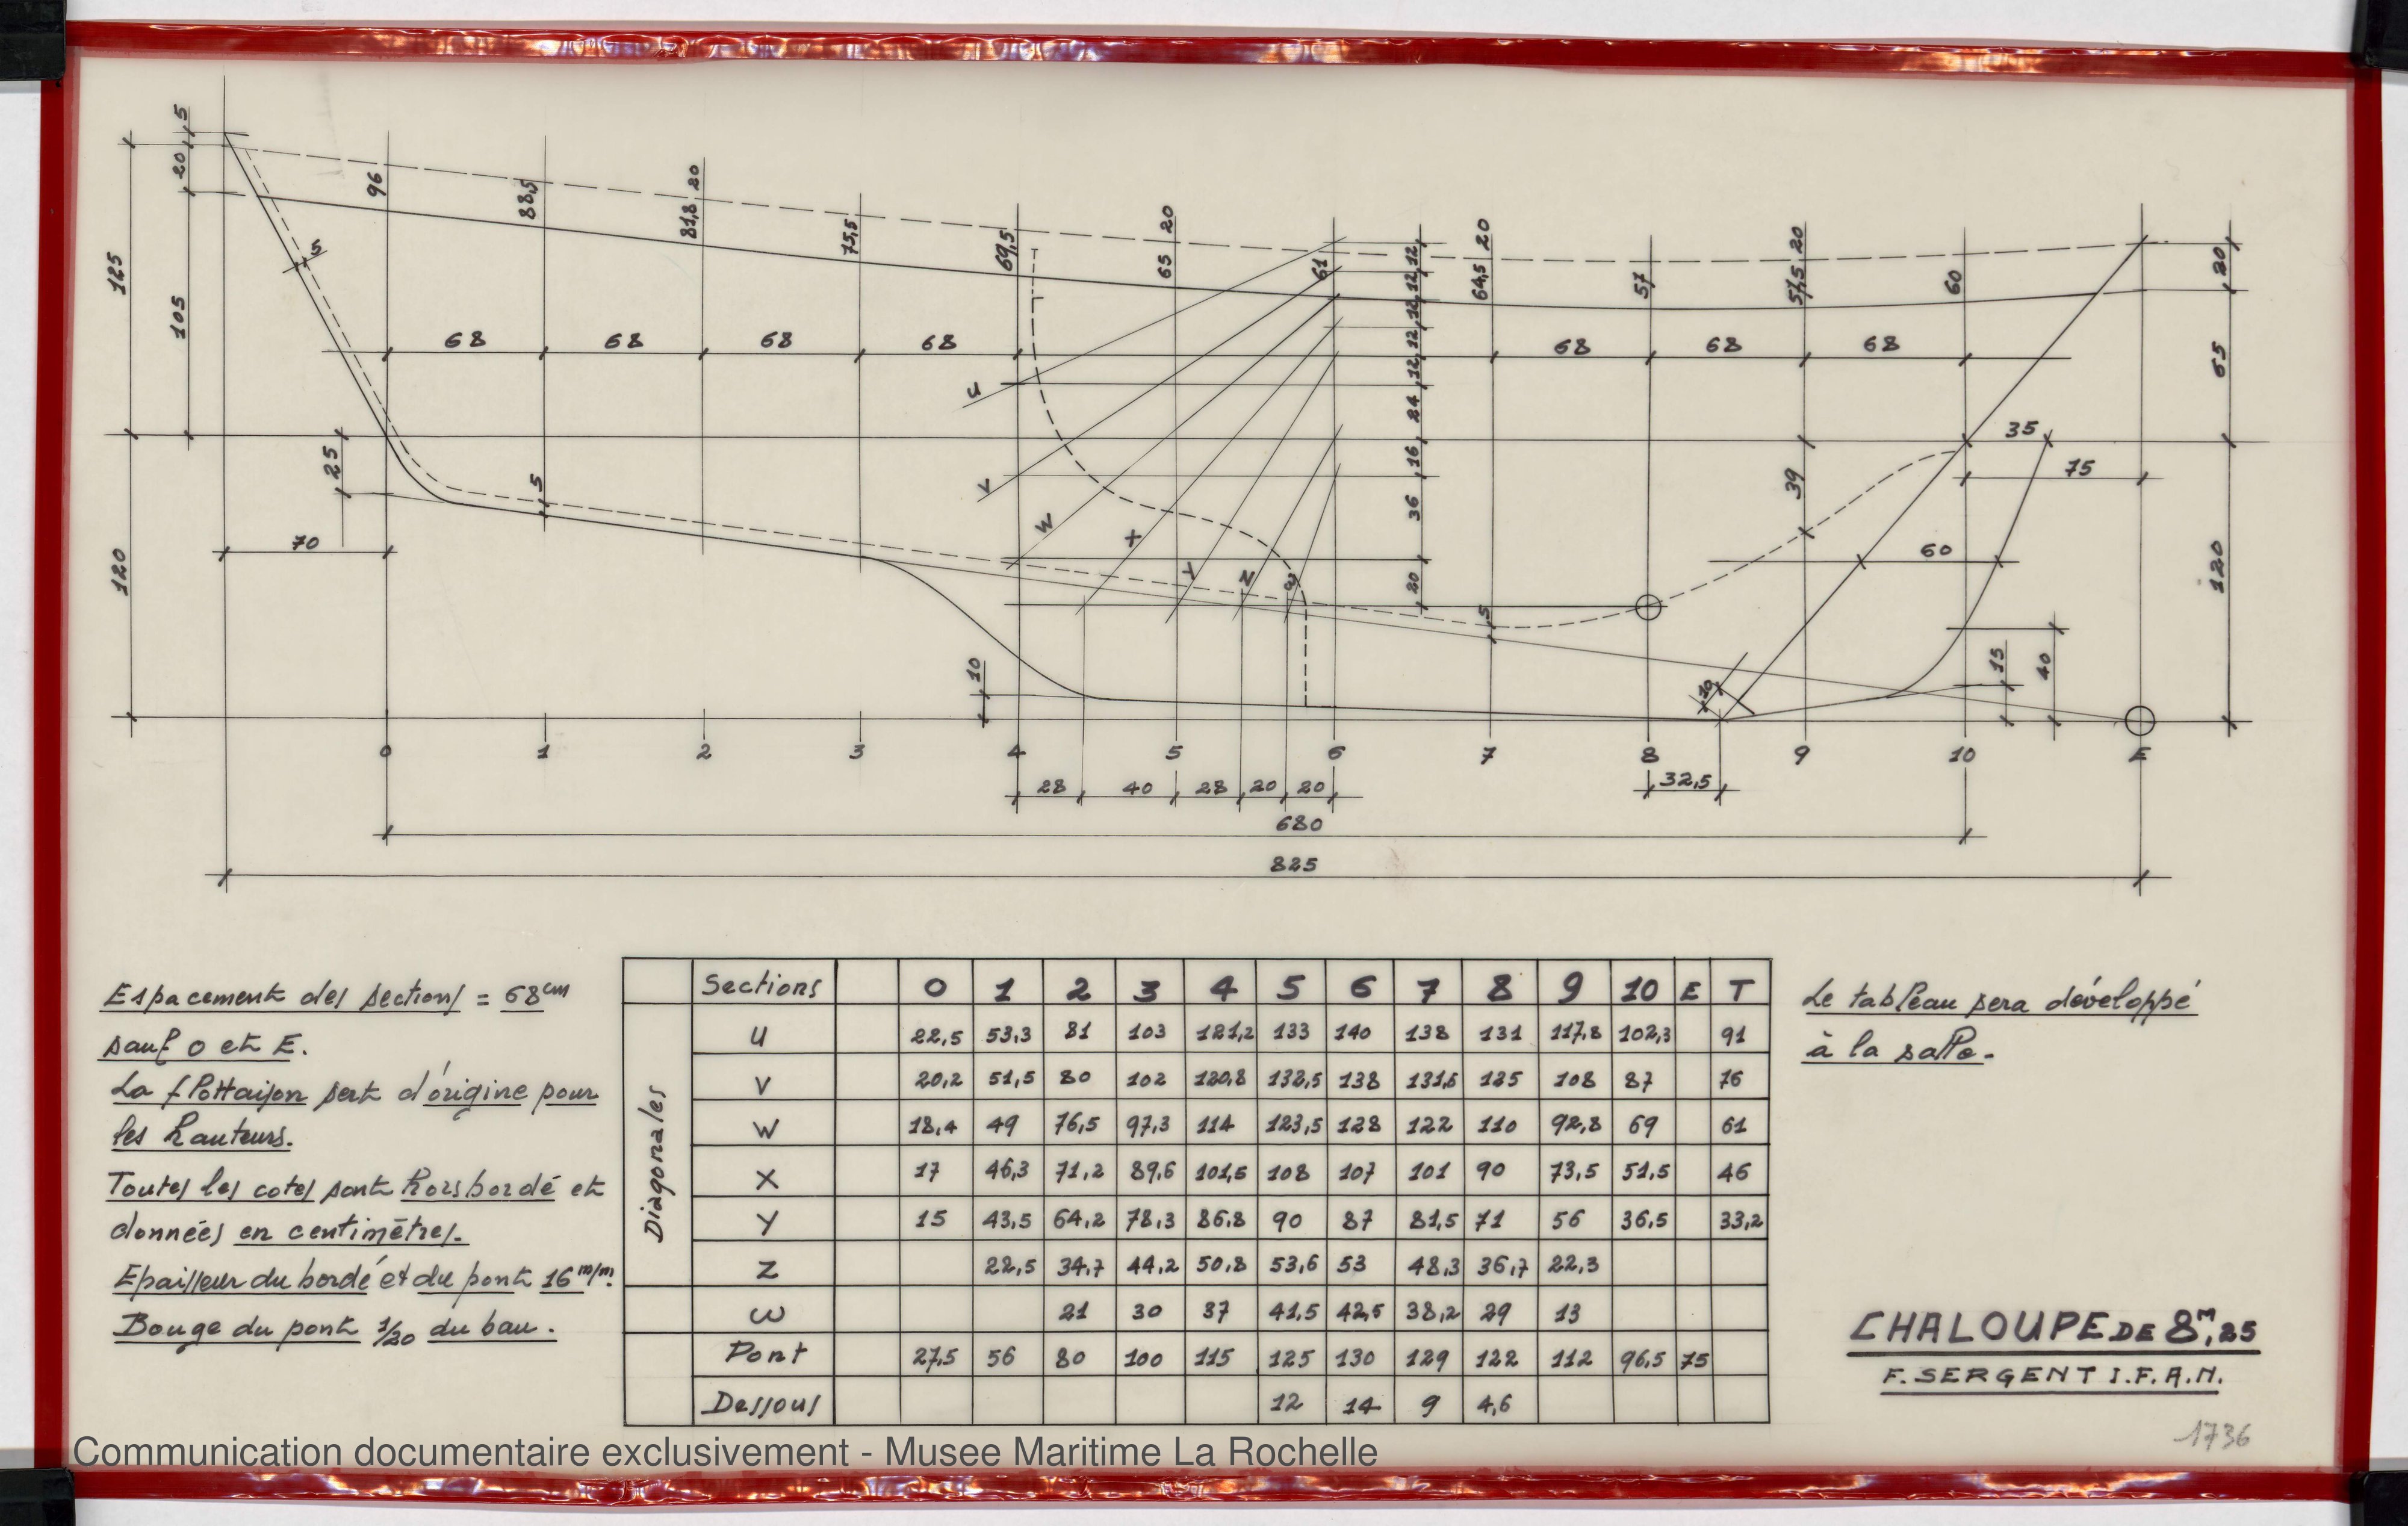 5
20
125
105
25
120
70
5
96
88,5
81,8 20
75,5
69,5
65 20
61
64,5 20
57
57,5 20
60
20
65
120
68 68 68 68 68 68 68
12 12 12 12 12 24 16 36 20
U V W X Y Z ω
5
5
39
35
75
60
15
40
10
10
0 1 2 3 4 5 6 7 8 9 10 E
28 40 28 20 20
32,5
680
825
Espacement des sections = 68cm
sauf 0 et E.
La flottaison sert d'origine pour
les hauteurs.
Toutes les cotes sont hors bordé et
données en centimètres.
Epaisseur du bordé et du pont 16 m/m.
Bouge du pont 1/20 du bau.
Sections 0 1 2 3 4 5 6 7 8 9 10 E T
Diagonales
U 22,5 53,3 81 103 121,2 133 140 138 131 117,8 102,3 91
V 20,2 51,5 80 102 120,8 132,5 138 131,5 125 108 87 76
W 18,4 49 76,5 97,3 114 123,5 128 122 110 92,8 69 61
X 17 46,3 71,2 89,6 101,5 108 107 101 90 73,5 51,5 46
Y 15 43,5 64,2 78,3 86,8 90 87 81,5 71 56 36,5 33,2
Z 22,5 34,7 44,2 50,8 53,6 53 48,3 36,7 22,3
ω 21 30 37 41,5 42,5 38,2 29 13
Pont 27,5 56 80 100 115 125 130 129 122 112 96,5 75
Dessous 12 14 9 4,6
Le tableau sera développé
à la salle.
CHALOUPE DE 8m,25
F. SERGENT I.F.A.N.
1736
Communication documentaire exclusivement - Musee Maritime La Rochelle